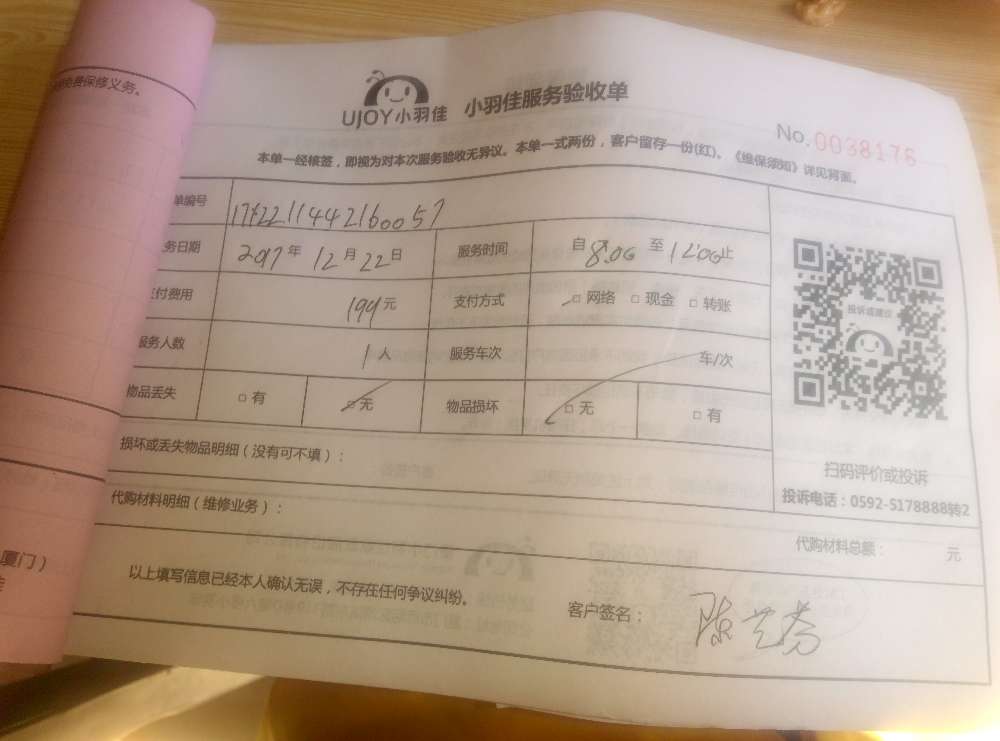 免费保修义务。
UJOY小羽佳 小羽佳服务验收单
No.0038176
本单一经核签，即视为对本次服务验收无异议。本单一式两份，客户留存一份(红)。《维保须知》详见背面。
单编号
务日期 2017 年 12 月 22 日 服务时间 自 8:00 至 12:00 止
支付费用 199 元 支付方式 □ 网络 □ 现金 □ 转账
服务人数 1 人 服务车次 车/次
物品丢失 □ 有 □ 无 物品损坏 □ 无 □ 有
投诉或建议
扫码评价或投诉
投诉电话：0592-5178888转2
损坏或丢失物品明细（没有可不填）：
代购材料明细（维修业务）：
代购材料总额： 元
厦门）
以上填写信息已经本人确认无误，不存在任何争议纠纷。
客户签名：